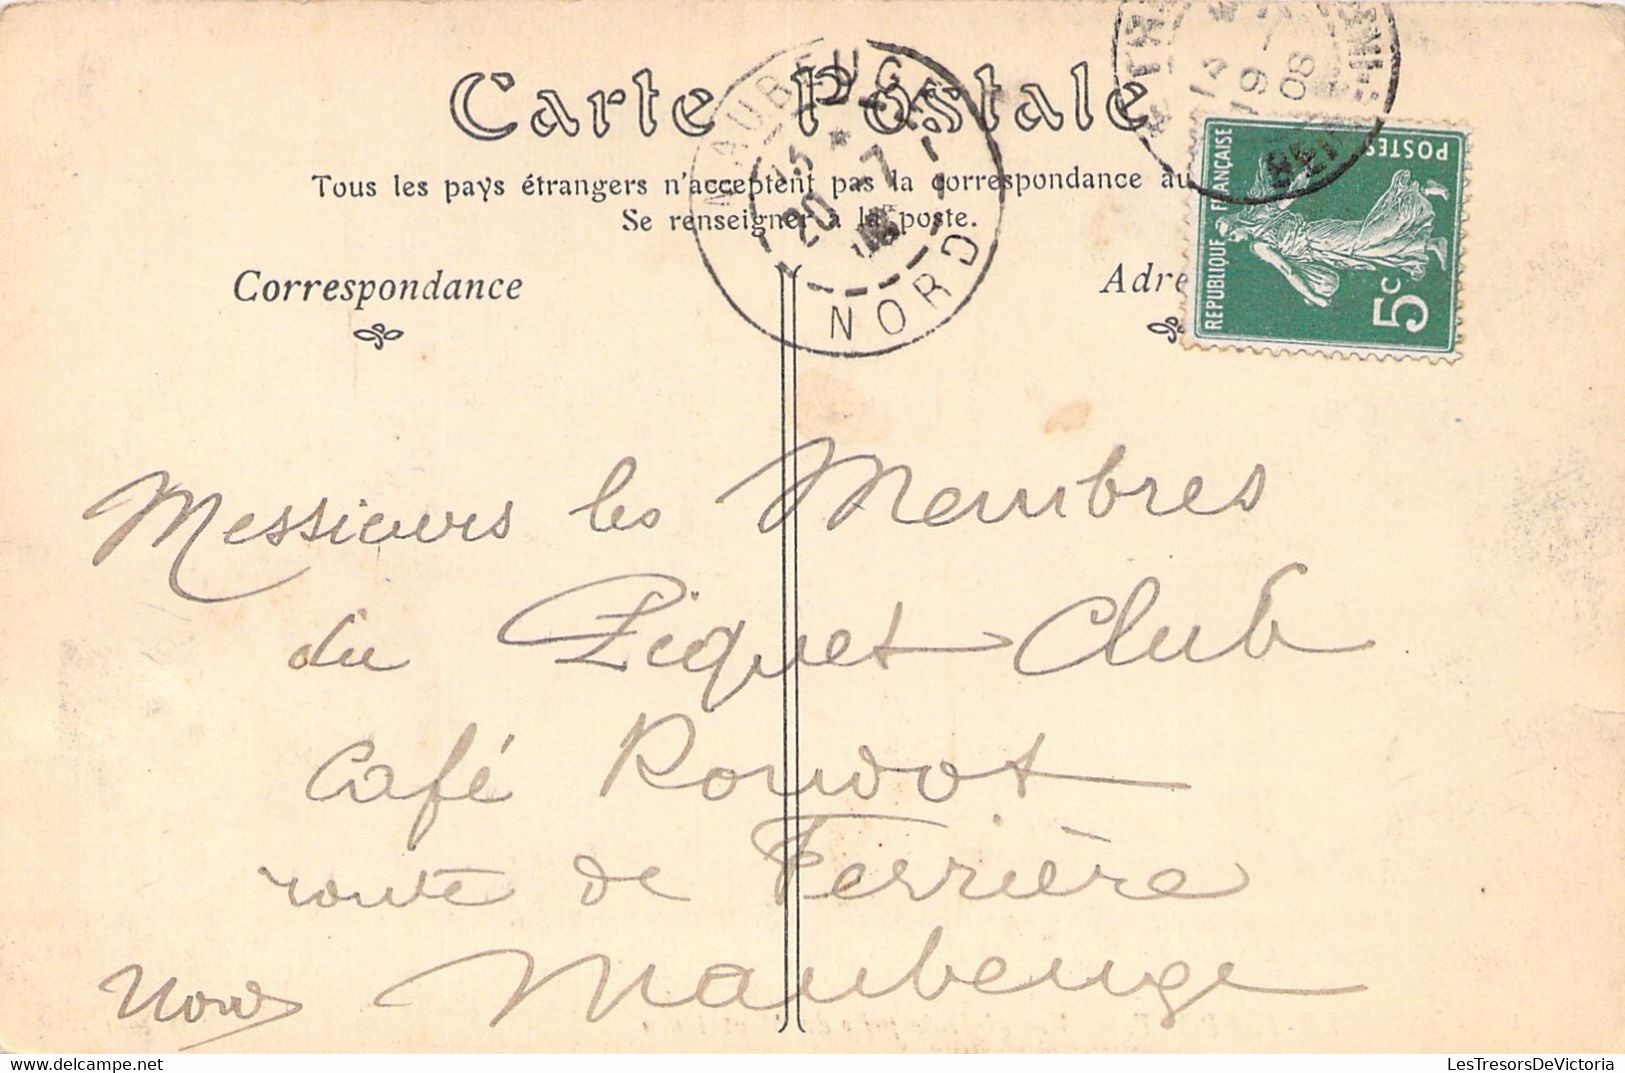 Carte Postale
Tous les pays étrangers n'acceptent pas la correspondance au
Se renseigner à la poste.
Correspondance
Adre
MAUBEUGE
15
20 -7
NORD
14
19 -
08
REPUBLIQUE FRANÇAISE
POSTES
5c
Messieurs les Membres
du Piquet Club
Café Roudot
route de Ferrière
Nord Maubeuge
LesTresorsDeVictoria